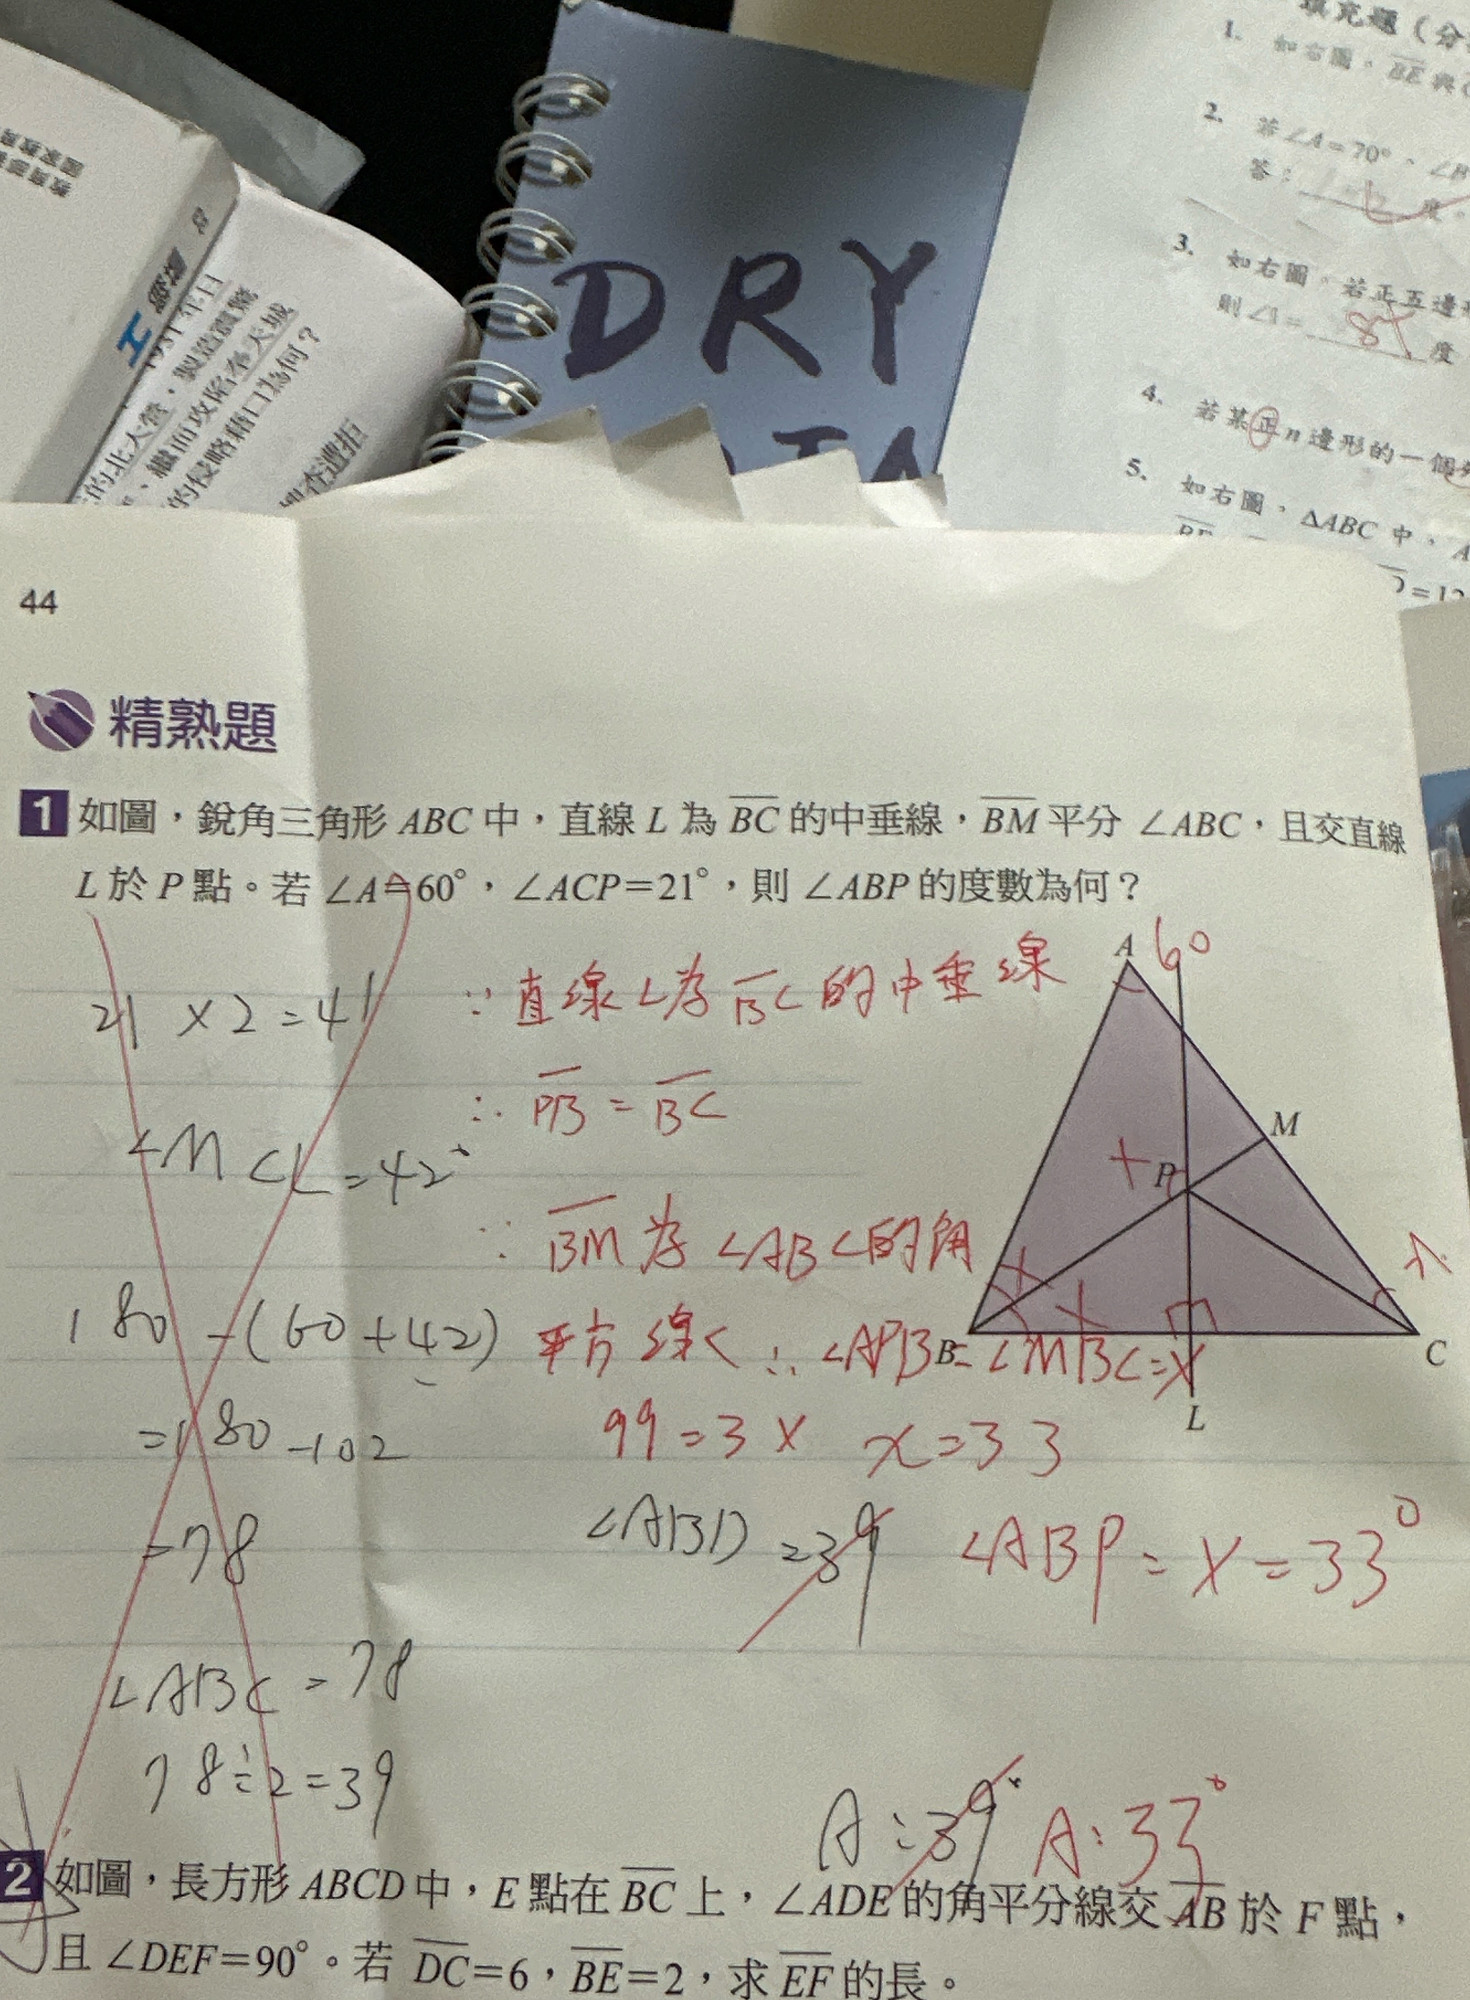 DRY
填充題（分
1. 如右圖，BE與
2. 若∠A=70°、∠B
答： 度。
3. 如右圖，若正五邊形
則∠1= 85 度
4. 若某正n邊形的一個外
5. 如右圖，△ABC中，A
=12
國家教育
1931年日
的北大營，製造瀋陽
，繼而攻陷奉天城
的侵略藉口為何？
查遭拒
44
精熟題
1 如圖，銳角三角形 ABC 中，直線 L 為 BC 的中垂線，BM 平分 ∠ABC，且交直線
L 於 P 點。若 ∠A=60°，∠ACP=21°，則 ∠ABP 的度數為何？
21×2=41
∠MCL=42°
180-(60+42)
=180-102
=78
∠ABC=78
78÷2=39
∵直線L為BC的中垂線
∴PB=BC
∵BM為∠ABC的角
平方線 ∴∠APB=∠MBC=x
99=3x x=33
∠ABD=39
∠ABP=x=33°
A 60
M
P
B
C
L
A:39° A:33°
2 如圖，長方形 ABCD 中，E 點在 BC 上，∠ADE 的角平分線交 AB 於 F 點，
且 ∠DEF=90°。若 DC=6，BE=2，求 EF 的長。